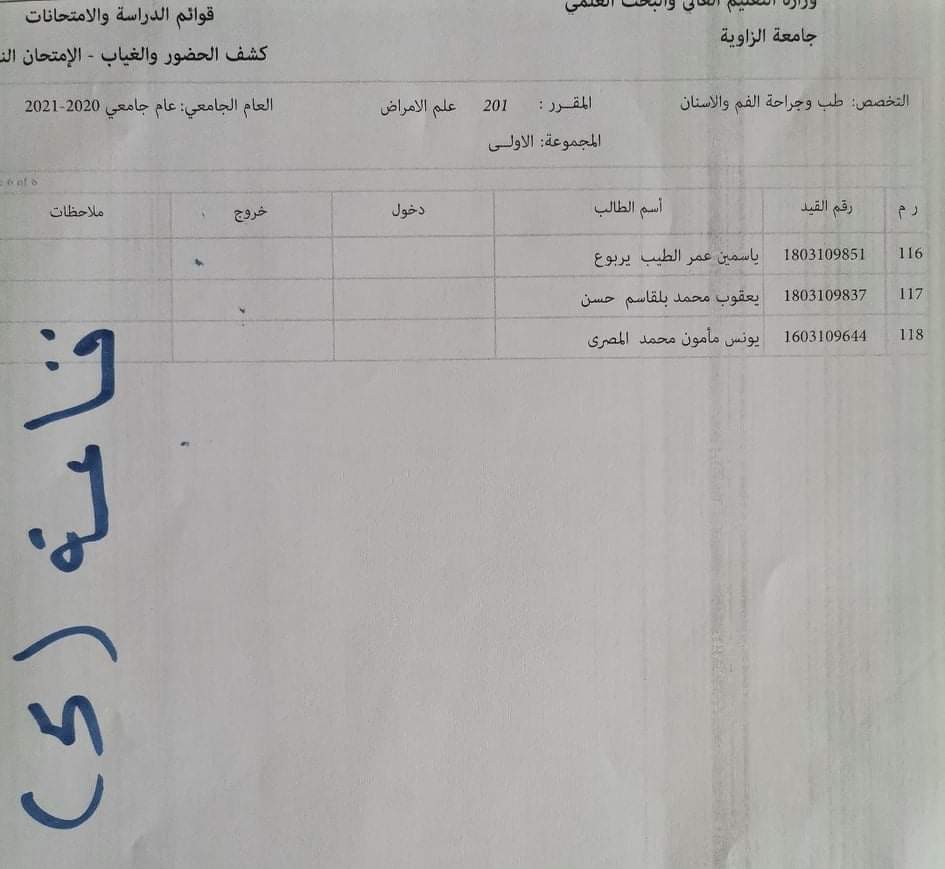 وزارة التعليم العالي والبحث العلمي
جامعة الزاوية
قوائم الدراسة والامتحانات
كشف الحضور والغياب - الإمتحان
التخصص: طب وجراحة الفم والاسنان المقـــرر : 201 علم الامراض العام الجامعي: عام جامعي 2020-2021
المجموعة: الاولـــى
6 of 6
ر م رقم القيد أسم الطالب دخول خروج ملاحظات
116 1803109851 ياسمين عمر الطيب يربوع
117 1803109837 يعقوب محمد بلقاسم حسن
118 1603109644 يونس مأمون محمد المصرى
قاعة